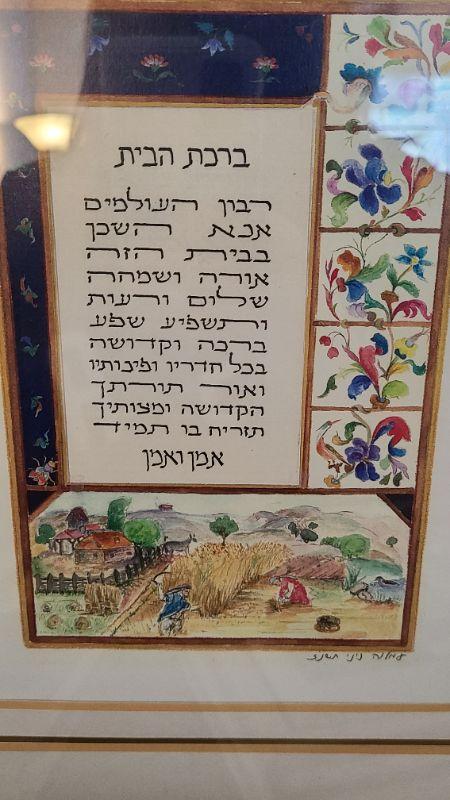 ברכת הבית
רבון העולמים
אנא השכן
בבית הזה
אורה ושמחה
שלום ורעות
ותשפיע שפע
ברכה וקדושה
בכל חדריו ופינותיו
ואור תורתך
הקדושה ומצותיך
תזריח בו תמיד
אמן ואמן